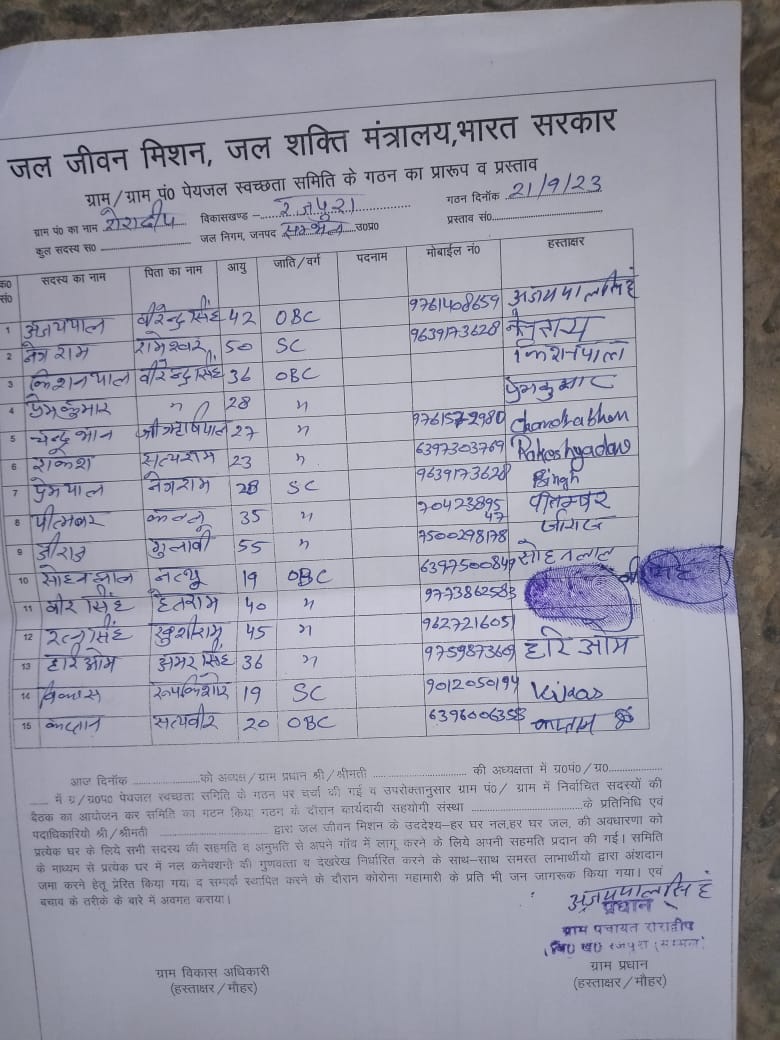 जल जीवन मिशन, जल शक्ति मंत्रालय,भारत सरकार
ग्राम/ग्राम पं0 पेयजल स्वच्छता समिति के गठन का प्रारूप व प्रस्ताव
ग्राम पं0 का नाम रोरादीप विकासखण्ड –रजपुरा गठन दिनॉक 21/9/23
कुल सदस्य स0 जल निगम, जनपद सम्भल उ0प्र0 प्रस्ताव सं0
क0 सं0 सदस्य का नाम पिता का नाम आयु जाति/वर्ग पदनाम मोबाईल नं0 हस्ताक्षर
1 अजयपाल वीरेन्द्र सिंह 42 OBC 9761408659 अजयपालसिहं
2 नेत्र राम रामेश्वर 50 SC 9639173628
3 किशनपाल वीरेन्द्र सिंह 36 OBC किशनपाल
4 प्रेमकुमार " 28 " प्रेमकुमार
5 चन्द्रभान 27 " 9761572980 Chandrabhan
6 राकेश सत्यराम 23 " 6397303769 Rakeshyadav
7 प्रेमपाल नेत्रराम 28 SC 9639173628 Singh
8 पीतम्बर कल्लू 35 " 7042389547 पीतम्बर
9 जीराज गुलाबी 55 " 7500298178 जीराज
10 सोहनलाल नत्थू 19 OBC 6397500849 सोहनलाल
11 वीर सिंह हेतराम 40 " 9773862583
12 रत्न सिंह खुशीराम 45 " 9627216051
13 हरिओम अमर सिंह 36 " 975987360 हरिओम
14 विकास रूपकिशोर 19 SC 9012050194 Vikas
15 कप्तान सत्यवीर 20 OBC 6396006353 कप्तान
आज दिनॉक को अध्यक्ष/ग्राम प्रधान श्री/श्रीमती की अध्यक्षता में ग्र0पं0/ग्र0
में ग्र/ग्र0प0 पेयजल स्वच्छता समिति के गठन पर चर्चा की गई व उपरोक्तानुसार ग्राम पं0/ ग्राम में निर्वाचित सदस्यों की
बैठक का आयोजन कर समिति का गठन किया गठन के दौरान कार्यदायी सहयोगी संस्था के प्रतिनिधि एवं
पदाधिकारियो श्री/श्रीमती द्वारा जल जीवन मिशन के उददेश्य-हर घर नल,हर घर जल, की अवधारणा को
प्रत्येक घर के लिये सभी सदस्य की सहमति व अनुमति से अपने गॉव में लागू करने के लिये अपनी सहमति प्रदान की गई। समिति
के माध्यम से प्रत्येक घर में नल कनेक्शनों की गुणवत्ता व देखरेख निर्धारित करने के साथ-साथ समस्त लाभार्थीयो द्वारा अंशदान
जमा करने हेतू प्रेरित किया गया। व सम्पर्क स्थापित करने के दौरान कोरोना महामारी के प्रति भी जन जागरूक किया गया। एवं
बचाव के तरीके के बारे में अवगत कराया।
अजयपालसिहं
प्रधान
ग्राम पंचायत रोरादीप
वि0 ख0 रजपुरा (सम्भल)
ग्राम विकास अधिकारी ग्राम प्रधान
(हस्ताक्षर/मौहर) (हस्ताक्षर/मौहर)